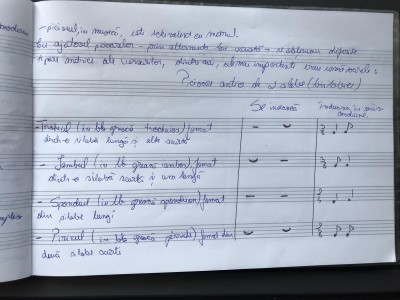 - piciorul, în muzică, este echivalent cu metrul.
Cu ajutorul picioarelor - prin alternanța lor variată - se obțineau diferite
tipuri metrice ale versurilor, dintre care, cele mai importante erau următoarele:
Picioare metrice de 2 silabe (bisilabice)
Se notează
- Troheul (în lb greacă trochaios) format
dintr-o silabă lungă și alta scurtă
- Iambul (în lb greacă iambos) format
dintr-o silabă scurtă și una lungă
- Spondeul (în lb greacă spondeios) format
din silabe lungi
- Piricul (în lb greacă) format din
două silabe scurte